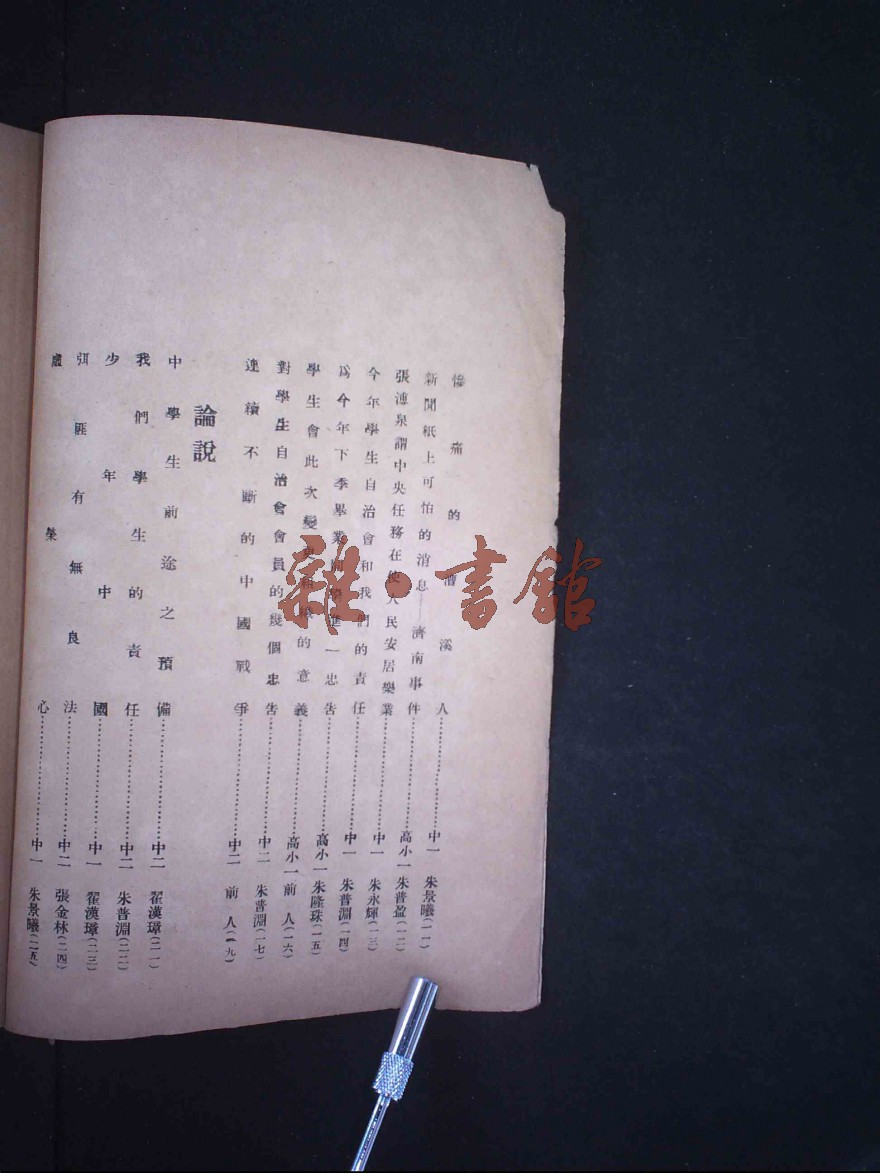 慘痛的漕溪人……中一 朱景曦(一一)
新聞紙上可怕的消息——濟南事件……高小一 朱普盈(一二)
張溥泉謂中央任務在使人民安居樂業……中一 朱永輝(一三)
今年學生自治會和我們的責任……中一 朱普淵(一四)
爲今年下季畢業同學進一忠告……高小一 朱隆珠(一五)
學生會此次變更的意義……高小一 前人(一六)
對學生自治會會員的幾個忠告……中二 朱普淵(一七)
連續不斷的中國戰爭……中二 前人(一九)
論說
中學生前途之預備……中二 翟漢璋(二一)
我們學生的責任……中二 朱普淵(二二)
少年中國……中一 翟漢璋(二三)
弭匪有無良法……中二 張金林(二四)
虛榮心……中一 朱景曦(二五)
雜·書館